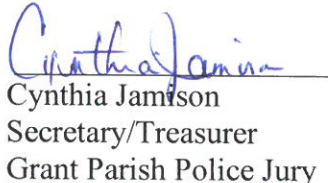 Cynthia Jamison
Cynthia Jamison
Secretary/Treasurer
Grant Parish Police Jury